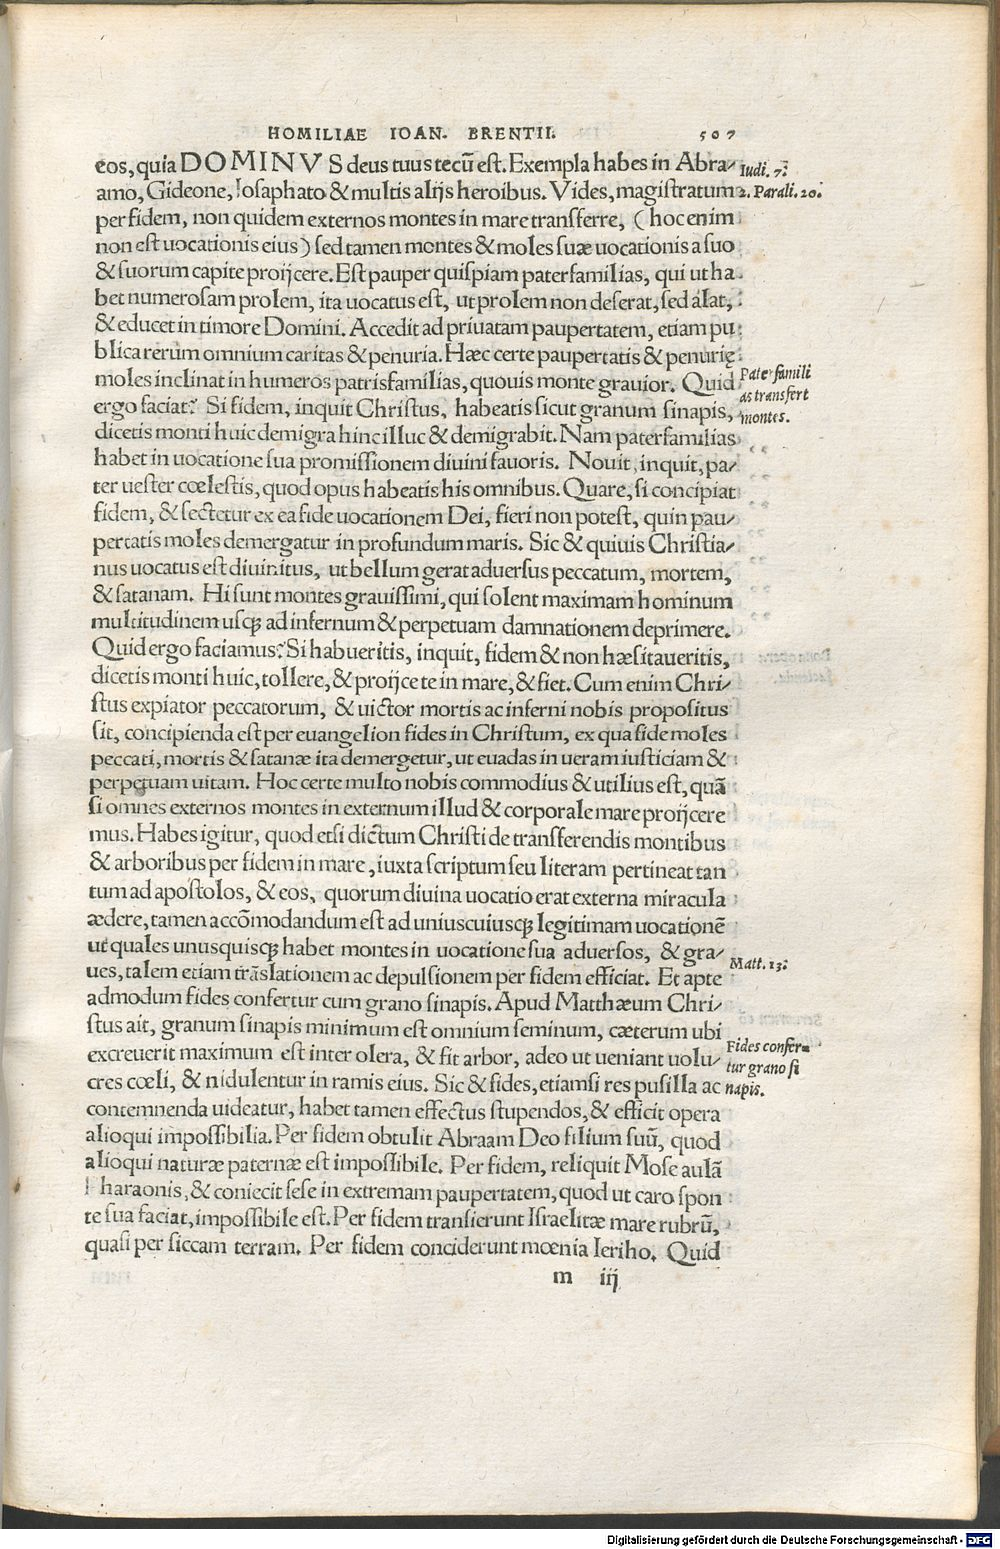 HOMILIAE IOAN. BRENTII. 507
eos, quia DOMINVS deus tuus tecũ est. Exempla habes in Abra-
amo, Gideone, Iosaphato & multis alijs heroibus. Vides, magistratum
per fidem, non quidem externos montes in mare transferre, (hoc enim
non est uocationis eius) sed tamen montes & moles suæ uocationis a suo
& suorum capite proijcere. Est pauper quispiam paterfamilias, qui ut ha
bet numerosam prolem, ita uocatus est, ut prolem non deserat, sed alat,
& educet in timore Domini. Accedit ad priuatam paupertatem, etiam pu
blica rerum omnium caritas & penuria. Hæc certe paupertatis & penurię
moles inclinat in humeros patrisfamilias, quouis monte grauior. Quid
ergo faciat? Si fidem, inquit Christus, habeatis sicut granum sinapis,
dicetis monti huic demigra hinc illuc & demigrabit. Nam paterfamilias
habet in uocatione sua promissionem diuini fauoris. Nouit, inquit, pa-
ter uester cœlestis, quod opus habeatis his omnibus. Quare, si concipiat
fidem, & sectetur ex ea fide uocationem Dei, fieri non potest, quin pau-
pertatis moles demergatur in profundum maris. Sic & quiuis Christia-
nus uocatus est diuinitus, ut bellum gerat aduersus peccatum, mortem,
& satanam. Hi sunt montes grauissimi, qui solent maximam hominum
multitudinem usqꝫ ad infernum & perpetuam damnationem deprimere.
Quid ergo faciamus? Si habueritis, inquit, fidem & non hæsitaueritis,
dicetis monti huic, tollere, & proijce te in mare, & fiet. Cum enim Chri-
stus expiator peccatorum, & uictor mortis ac inferni nobis propositus
sit, concipienda est per euangelion fides in Christum, ex qua fide moles
peccati, mortis & satanæ ita demergetur, ut euadas in ueram iusticiam &
perpetuam uitam. Hoc certe multo nobis commodius & utilius est, quã
si omnes externos montes in externum illud & corporale mare proijcere
mus. Habes igitur, quod etsi dictum Christi de transferendis montibus
& arboribus per fidem in mare, iuxta scriptum seu literam pertineat tan
tum ad apostolos, & eos, quorum diuina uocatio erat externa miracula
ædere, tamen accõmodandum est ad uniuscuiusqꝫ legitimam uocationẽ
ut quales unusquisqꝫ habet montes in uocatione sua aduersos, & gra-
ues, talem etiam trãslationem ac depulsionem per fidem efficiat. Et apte
admodum fides confertur cum grano sinapis. Apud Matthæum Chri-
stus ait, granum sinapis minimum est omnium seminum, cæterum ubi
excreuerit maximum est inter olera, & fit arbor, adeo ut ueniant uolu-
cres cœli, & nidulentur in ramis eius. Sic & fides, etiamsi res pusilla ac
contemnenda uideatur, habet tamen effectus stupendos, & efficit opera
alioqui impossibilia. Per fidem obtulit Abraam Deo filium suũ, quod
alioqui naturæ paternæ est impossibile. Per fidem, reliquit Mose aulã
Pharaonis, & coniecit sese in extremam paupertatem, quod ut caro spon
te sua faciat, impossibile est. Per fidem transierunt Israelitæ mare rubrũ,
quasi per siccam terram. Per fidem conciderunt mœnia Ieriho. Quid
m iij
Iudi. 7.
2. Parali. 20.
Pater famili
as transfert
montes.
Matt. 13.
Fides confer-
tur grano si
napis.
Digitalisierung gefördert durch die Deutsche Forschungsgemeinschaft - DFG